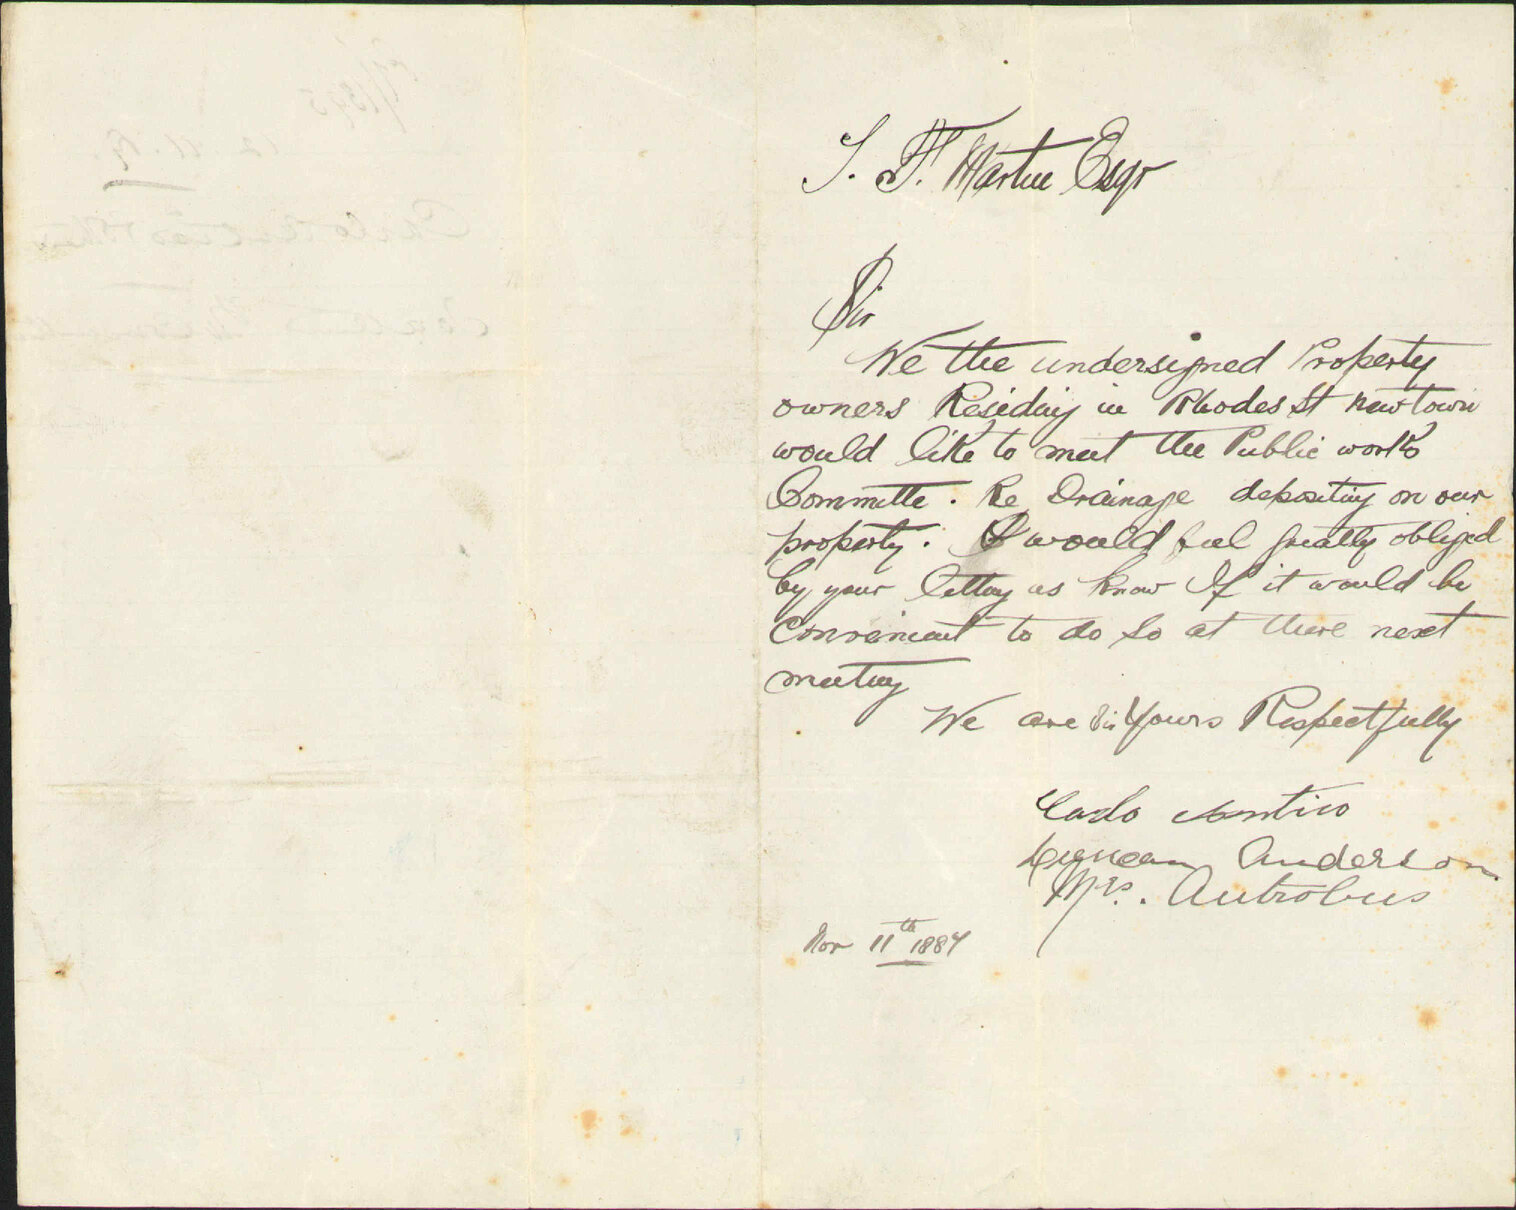 J. F. Martin Esqr
Sir
We the undersigned Property
owners Residing in Rhodes St Newtown
would like to meet the Public works
Committe. Re Drainage depositing on our
property. & would feel greatly obliged
by your letting us know If it would be
convenient to do so at there next
meeting
We are Sir Yours Respectfully
Carlo Antico
Duncan Anderson
Mrs. Antrobus
Nov 11th 1887